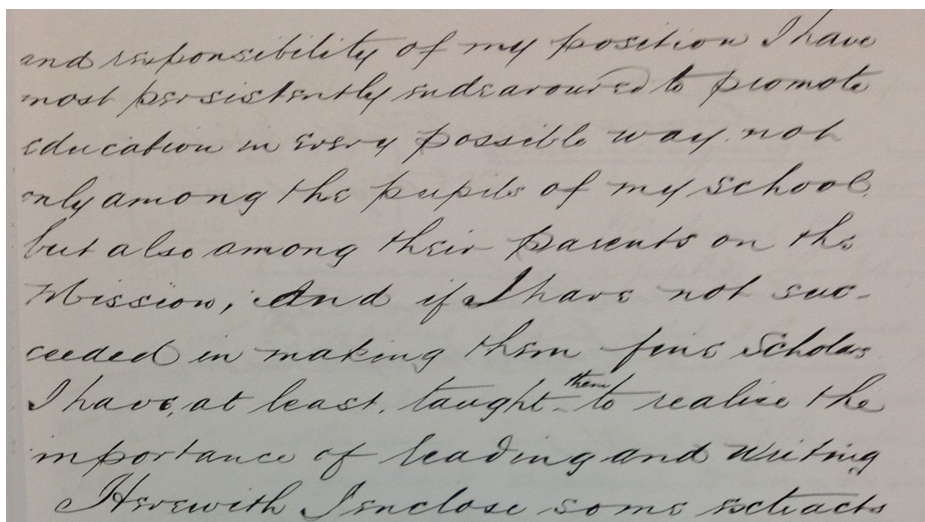 and responsibility of my position I have
most persistently endeavoured to promote
education in every possible way, not
only among the pupils of my school,
but also among their parents on the
Mission; And if I have not suc-
ceeded in making them fine Scholars
I have, at least, taught them to realise the
importance of reading and writing
Herewith I enclose some extracts